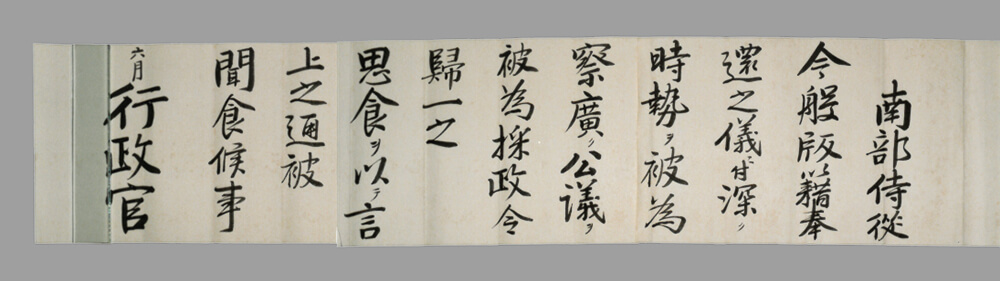 南部侍從
今般版籍奉
還之儀ニ付深ク
時勢ヲ被為
察廣ク公議ヲ
被為採政令
歸一之
思食ヲ以テ言
上之通被
聞食候事
六月
行政官